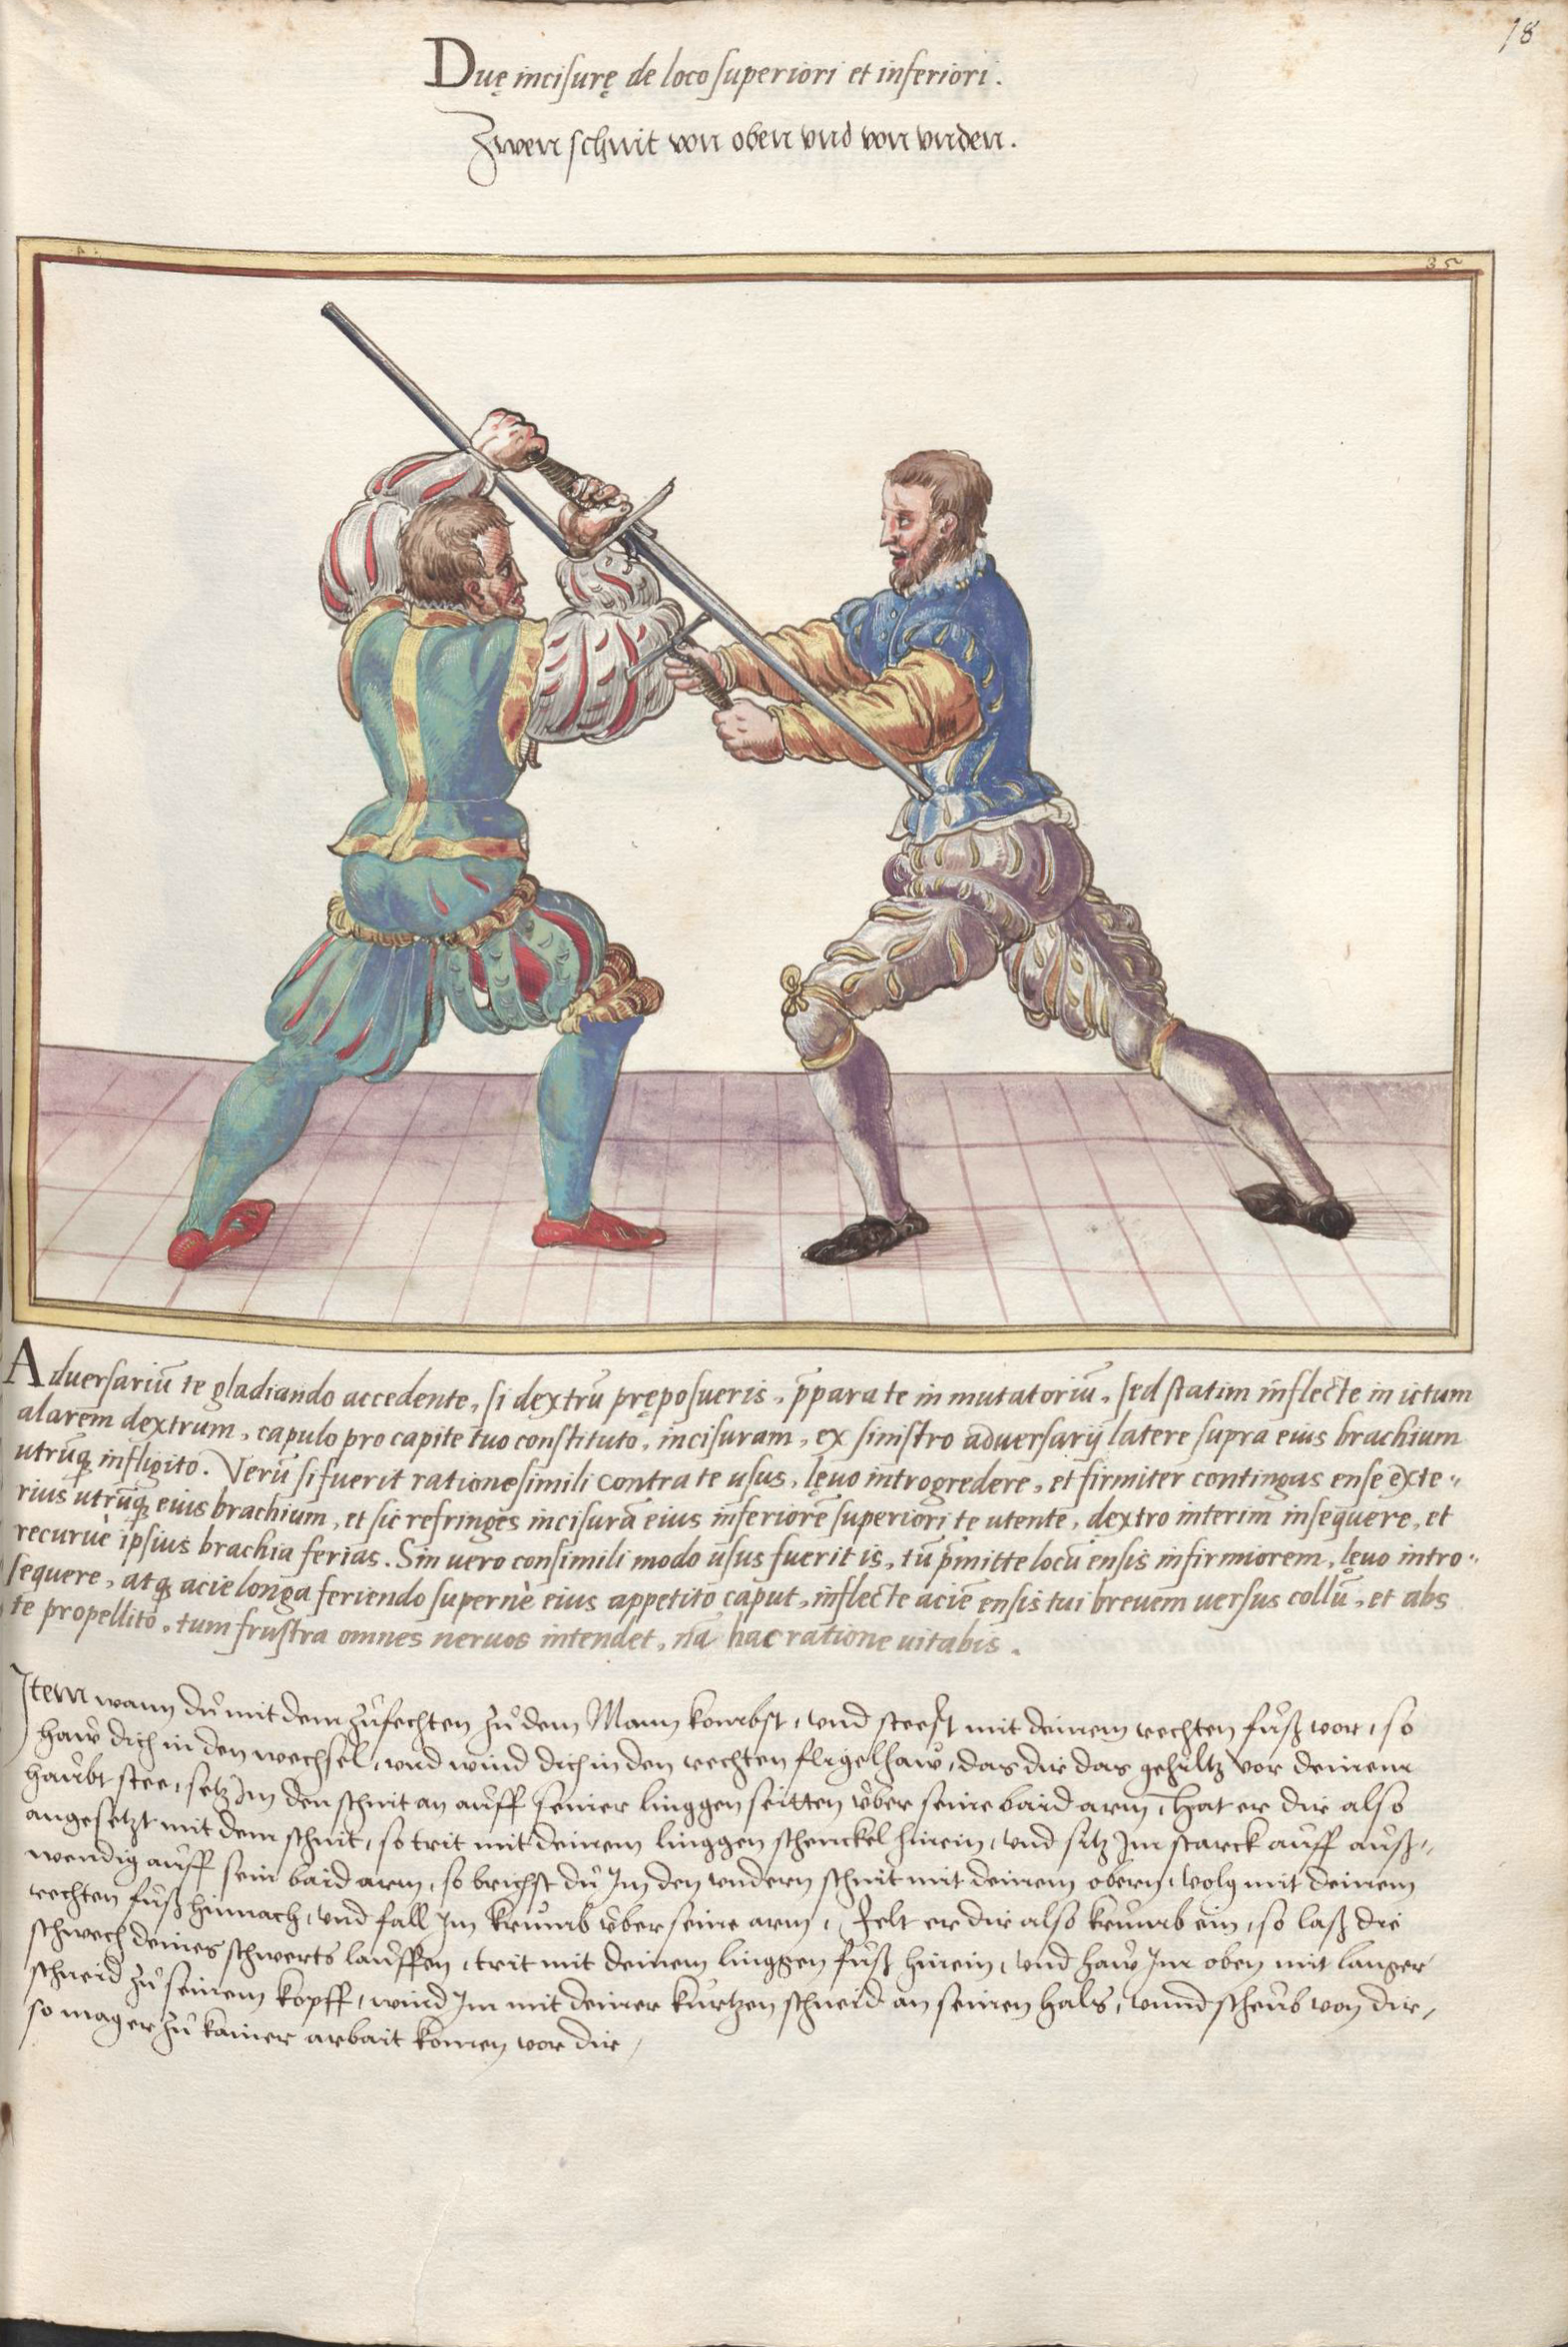 18
Duę inciſurę de loco ſuperiori et inferiori.
Zwen ſchnit von oben vnd von vnden.
35
Aduerſariū te gladiando accedente, ſi dextrū prępoſueris, p̄para te in mutatoriū, ſed ſtatim inflecte in ictum
alarem dextrum, capulo pro capite tuo conſtituto, inciſuram, ex ſiniſtro aduerſarij latere ſupra eius brachium
utrūq; infligito. Verū ſi fuerit ratione ſimili contra te uſus, lęuo introgredere, et firmiter contingas enſe exte⸗
rius utrūq; eius brachium, et ſic refringes inciſurā eius inferiorē ſuperiori te utente, dextro interim inſequere, et
recuruè ipſius brachia ferias. Sin uero conſimili modo uſus fuerit is, tū p̄mitte locū enſis infirmiorem, lęuo intro⸗
ſequere, atq; acie longa feriendo ſupernè eius appetito caput, inflecte aciē enſis tui breuem uerſus collū, et abs
te propellito, tum fruſtra omnes neruos intendet, nā hac ratione uitabis.
Item wann du mit dem zůfechten zů dem Mann kombſt, vnd steeſt mit deinem rechten fůß vor, ſo
haw dich in den wechſel, vnd wind dich in den rechten fligelhaw, das dir das gehiltz vor deinem
haubt stee, ſetz Im den ſchnit an auff ſeiner linggen ſeitten vber ſeine baid arm, Hat er dir alſo
angeſetzt mit dem ſchnit, ſo trit mit deinem linggen ſchenckel hinein, vnd ſitz Im starck auff auß⸗
wendig auff ſein baid arm, ſo brichſt du Im den vndern ſchnit mit deinem obern, volg mit deinem
rechten fůß hinnach, vnd fall Im krumb vber ſeine arm, Felt er dir alſo krumb ein, ſo laß die
ſchwech deines ſchwerts lauffen, trit mit deinem linggen fůß hinein, vnd haw Im oben mit langer
ſchneid zů ſeinem kopff, wind Im mit deiner kurtzen ſchneid an ſeinen hals, vnnd ſcheub von dir,
ſo mag er zů kainer arbait komen vor dir,